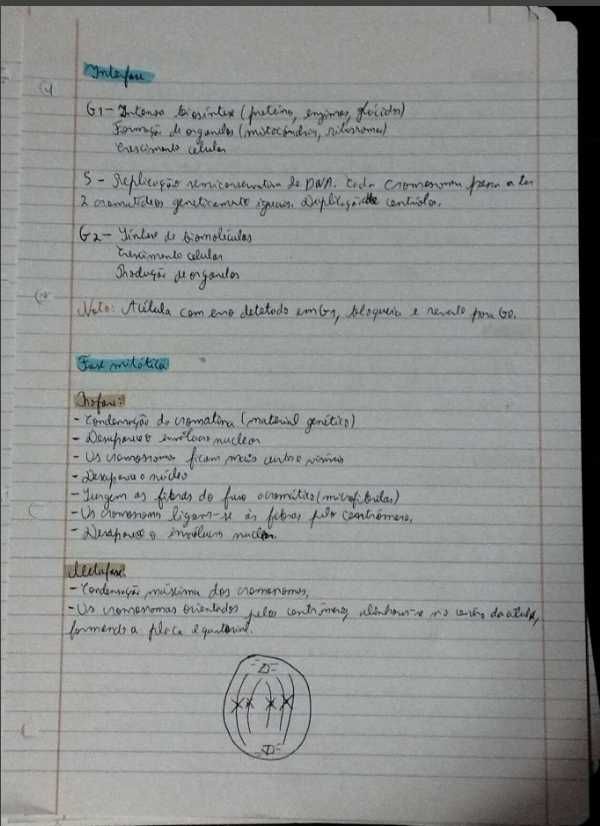 Interfase
G1 - Intensa biossíntese (proteína, enzimas, glúcidos)
Formação de organelos (mitocôndrias, ribossomas)
Crescimento celular
S - Replicação semiconservativa do DNA. Cada cromossoma passa a ter
2 cromatídeos geneticamente iguais. Duplicação de centríolos.
G2 - Síntese de biomoléculas
Crescimento celular
Produção de organelos
Nota: A célula com erro detetado em G1, bloqueia e reverte para G0.
Fase mitótica
Profase:
- Condensação da cromatina (material genético)
- Desaparece o invólucro nuclear
- Os cromossomas ficam mais curtos e visíveis
- Desaparece o núcleo
- Surgem as fibras do fuso acromático (microfibrilas)
- Os cromossomas ligam-se às fibras pelo centrómero.
- Desaparece o invólucro nuclear.
Metafase
- Condensação máxima dos cromossomas.
- Os cromossomas orientados pelos centrómeros, alinham-se no centro da célula,
formando a placa equatorial.